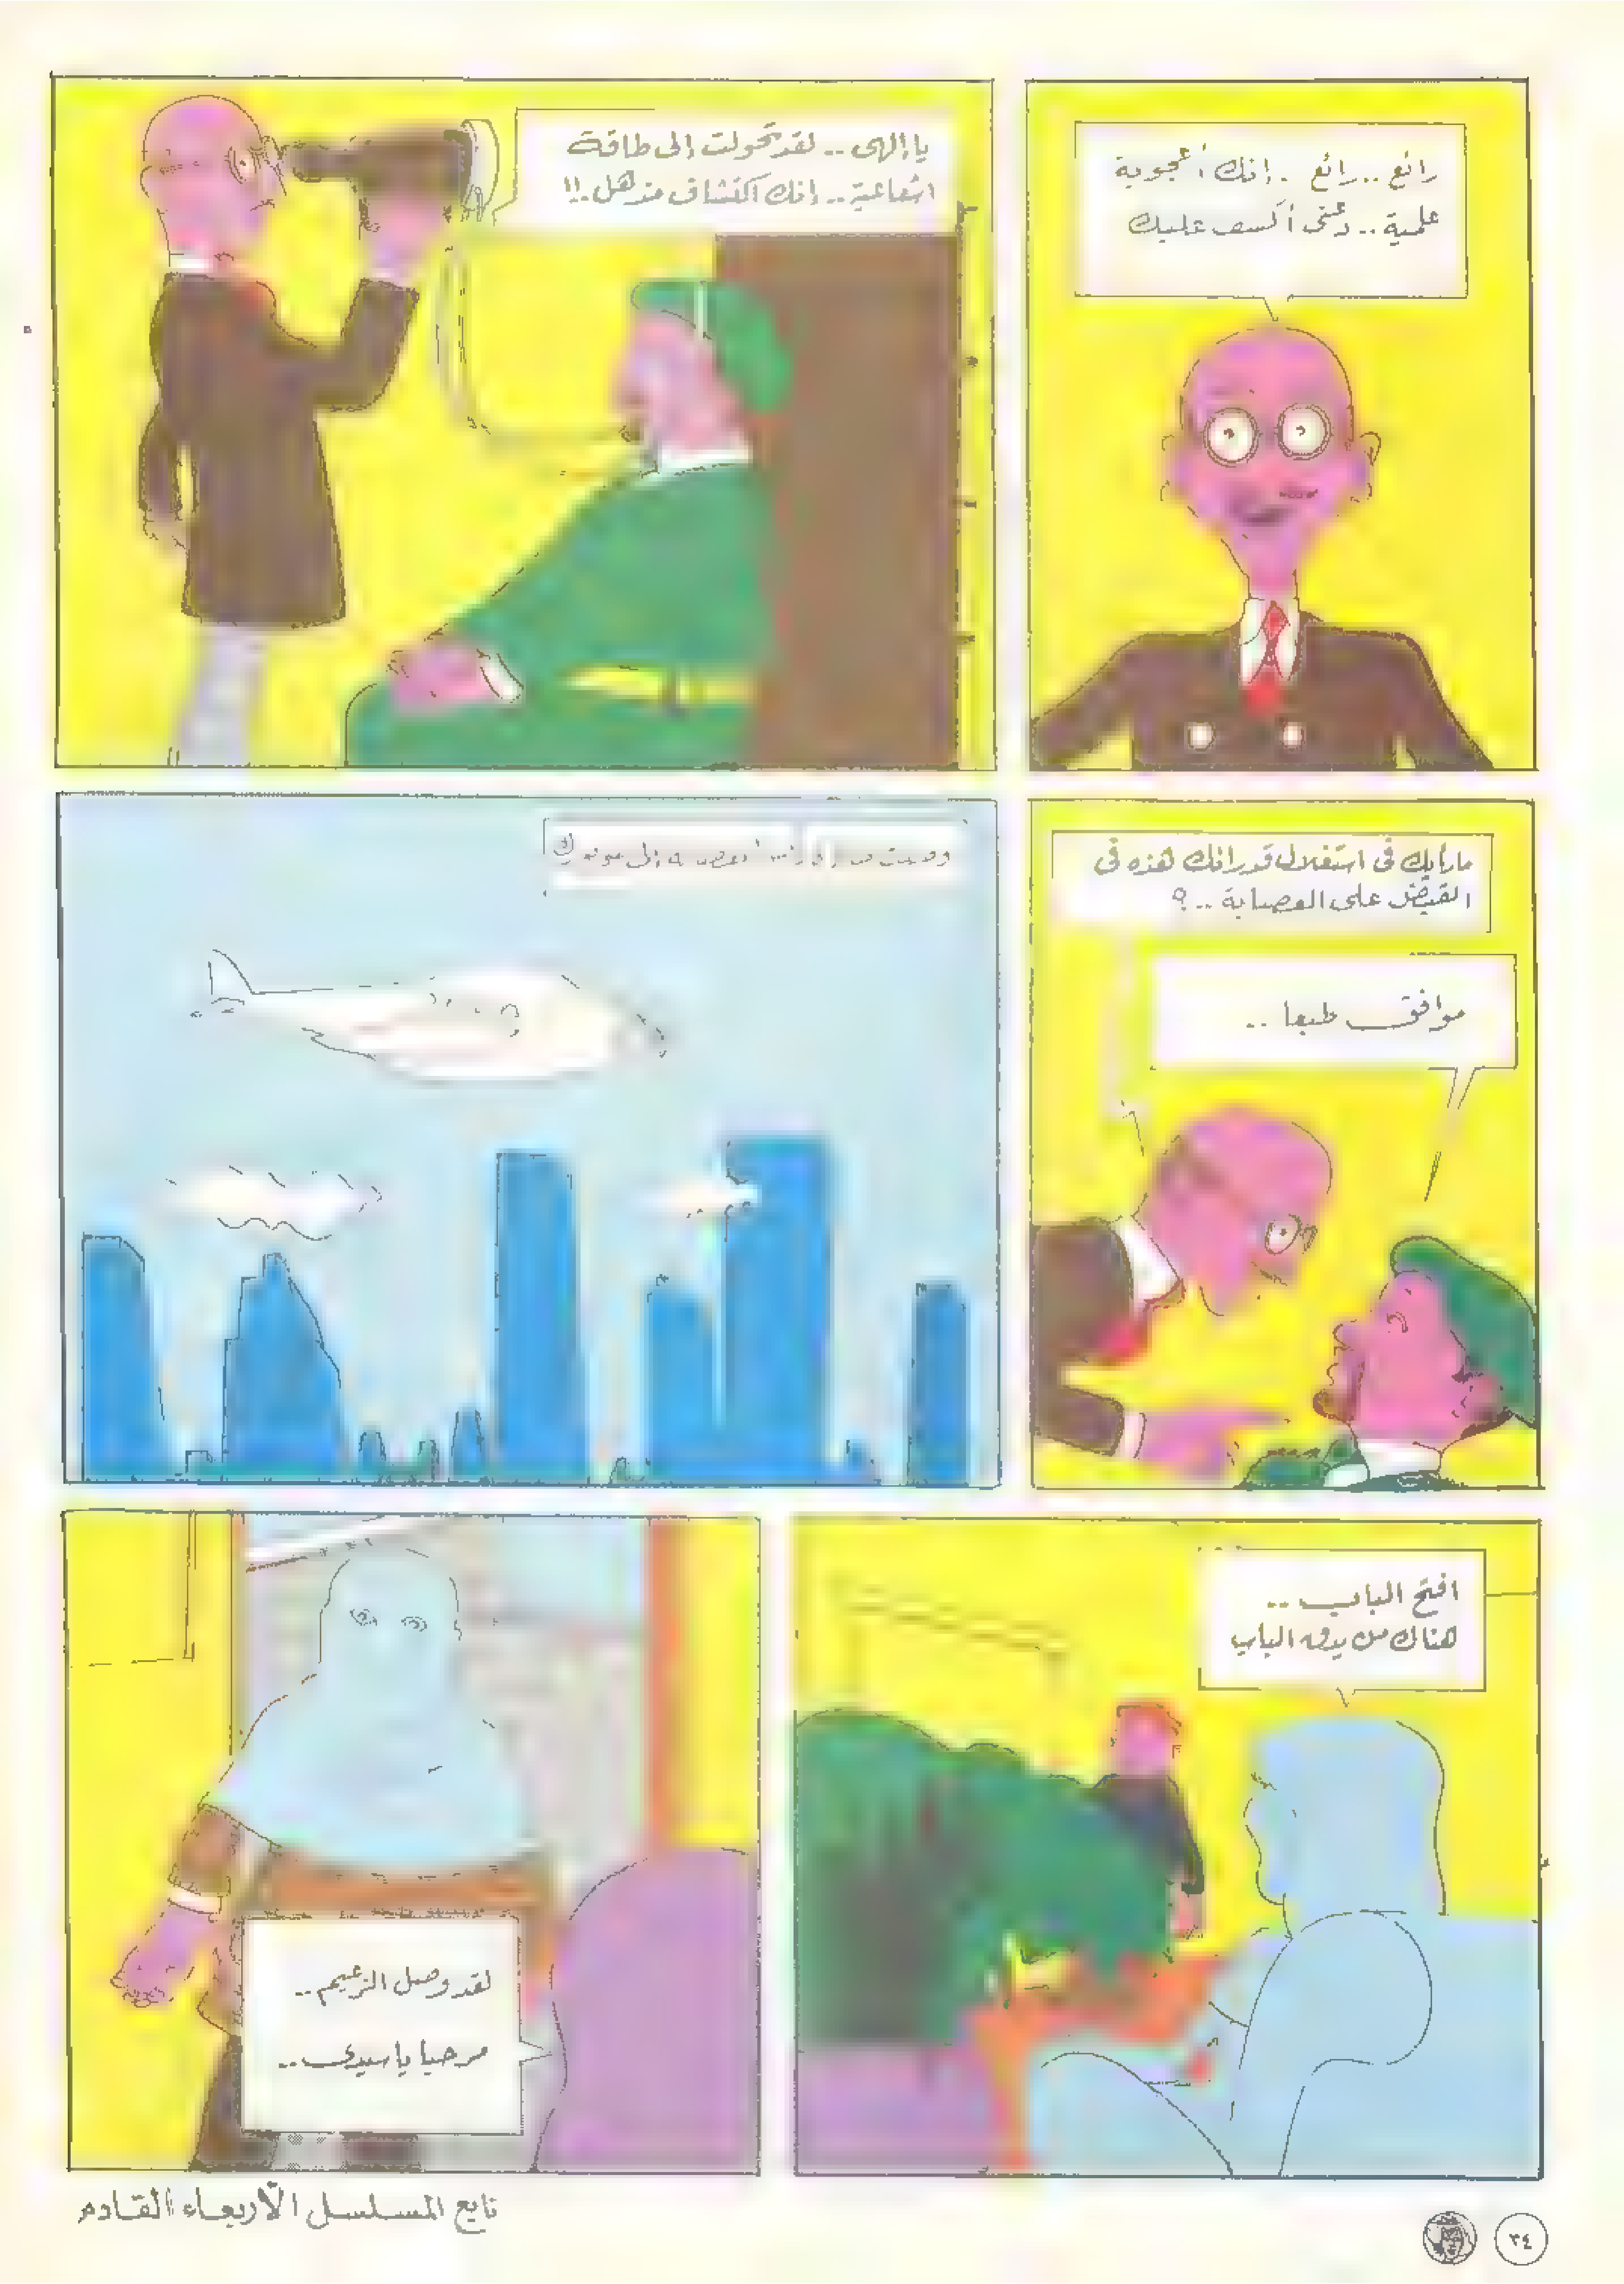 رائع .. رائع .. إنك أعجوبة
علمية .. دعنى أكشف عليك
يا إلهى .. لقد تحولت إلى طاقة
اشعاعية .. إنك اكتشاف مذهل .. !!
مارأيك فى استغلال قدراتك هذه فى
القبض على العصابة .. ؟
موافق طبعا ..
إلى
افتح الباب ..
هناك من يدق الباب
لقد وصل الزعيم ..
مرحبا يا سيدى ..
تابع المسلسل الأربعاء القادم
٣٤